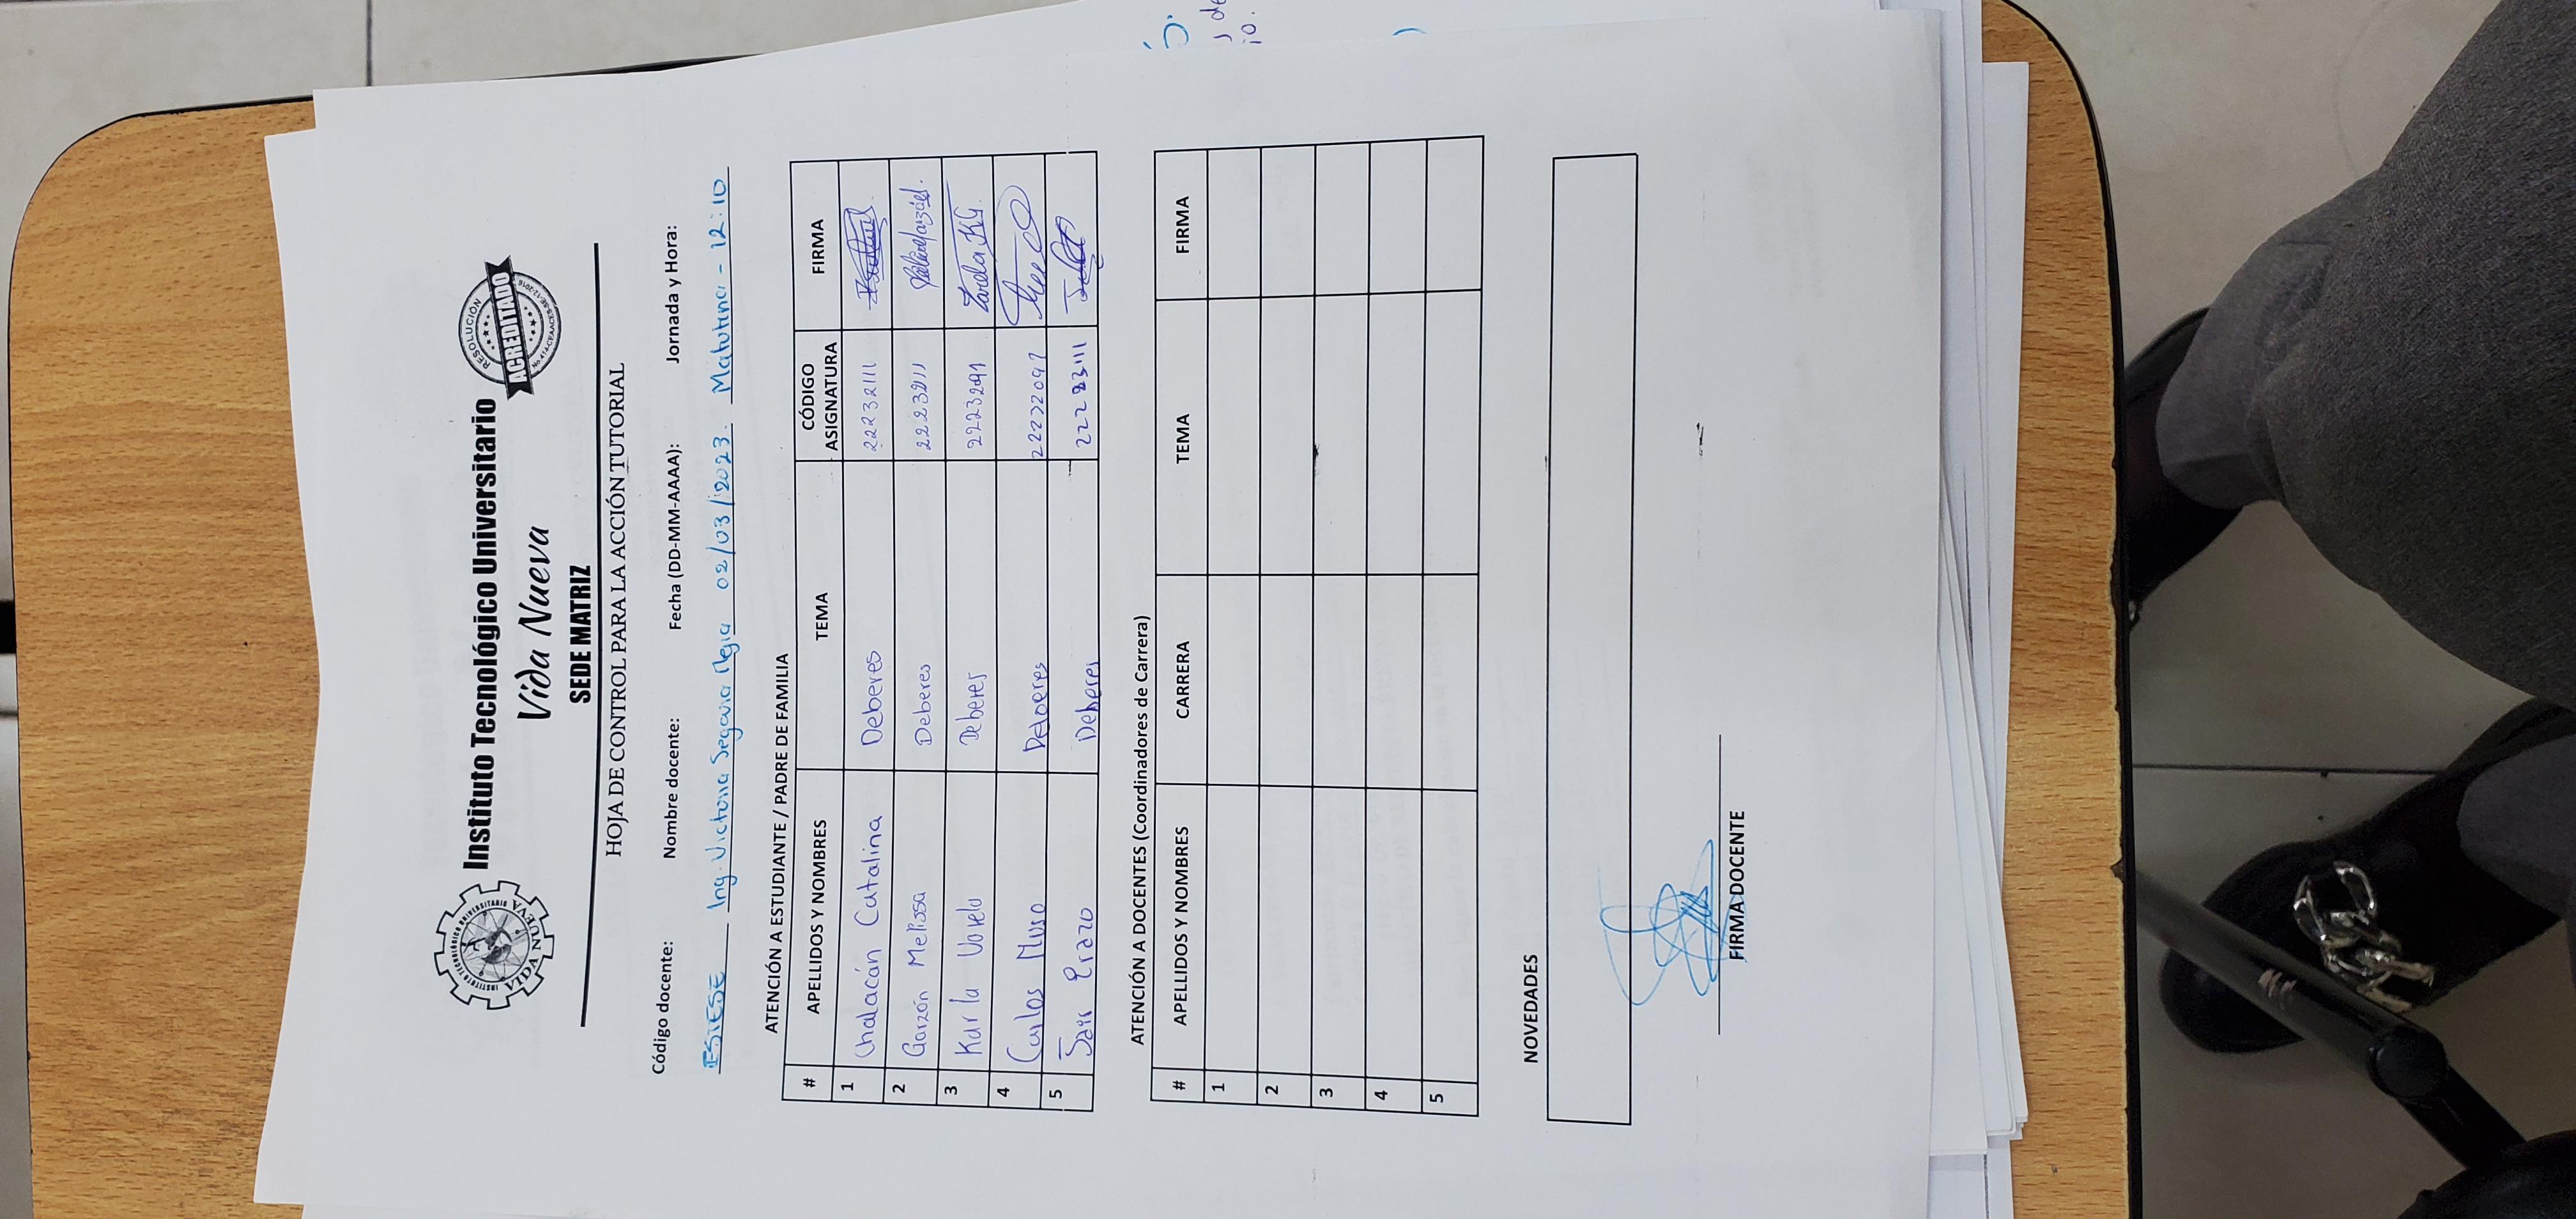 INSTITUTO TECNOLÓGICO UNIVERSITARIO
VIDA NUEVA
Instituto Tecnológico Universitario
Vida Nueva
SEDE MATRIZ
RESOLUCIÓN
ACREDITADO
No.414-CEAACES-SE-12-2016
HOJA DE CONTROL PARA LA ACCIÓN TUTORIAL
Código docente: Nombre docente: Fecha (DD-MM-AAAA): Jornada y Hora:
ESTESE Ing. Victoria Segovia Mejia 02/03/2023. Matutina - 12:10
ATENCIÓN A ESTUDIANTE / PADRE DE FAMILIA
# APELLIDOS Y NOMBRES TEMA CÓDIGO ASIGNATURA FIRMA
1 Chalacán Catalina Deberes 22232111
2 Garzón Melissa Deberes 22223211
3 Karla Varela Deberes 22232091 Varela KG.
4 Carlos Muso Deberes 22232097
5 Jair Erazo Deberes 22223111
ATENCIÓN A DOCENTES (Coordinadores de Carrera)
# APELLIDOS Y NOMBRES CARRERA TEMA FIRMA
1
2
3
4
5
NOVEDADES
FIRMA DOCENTE